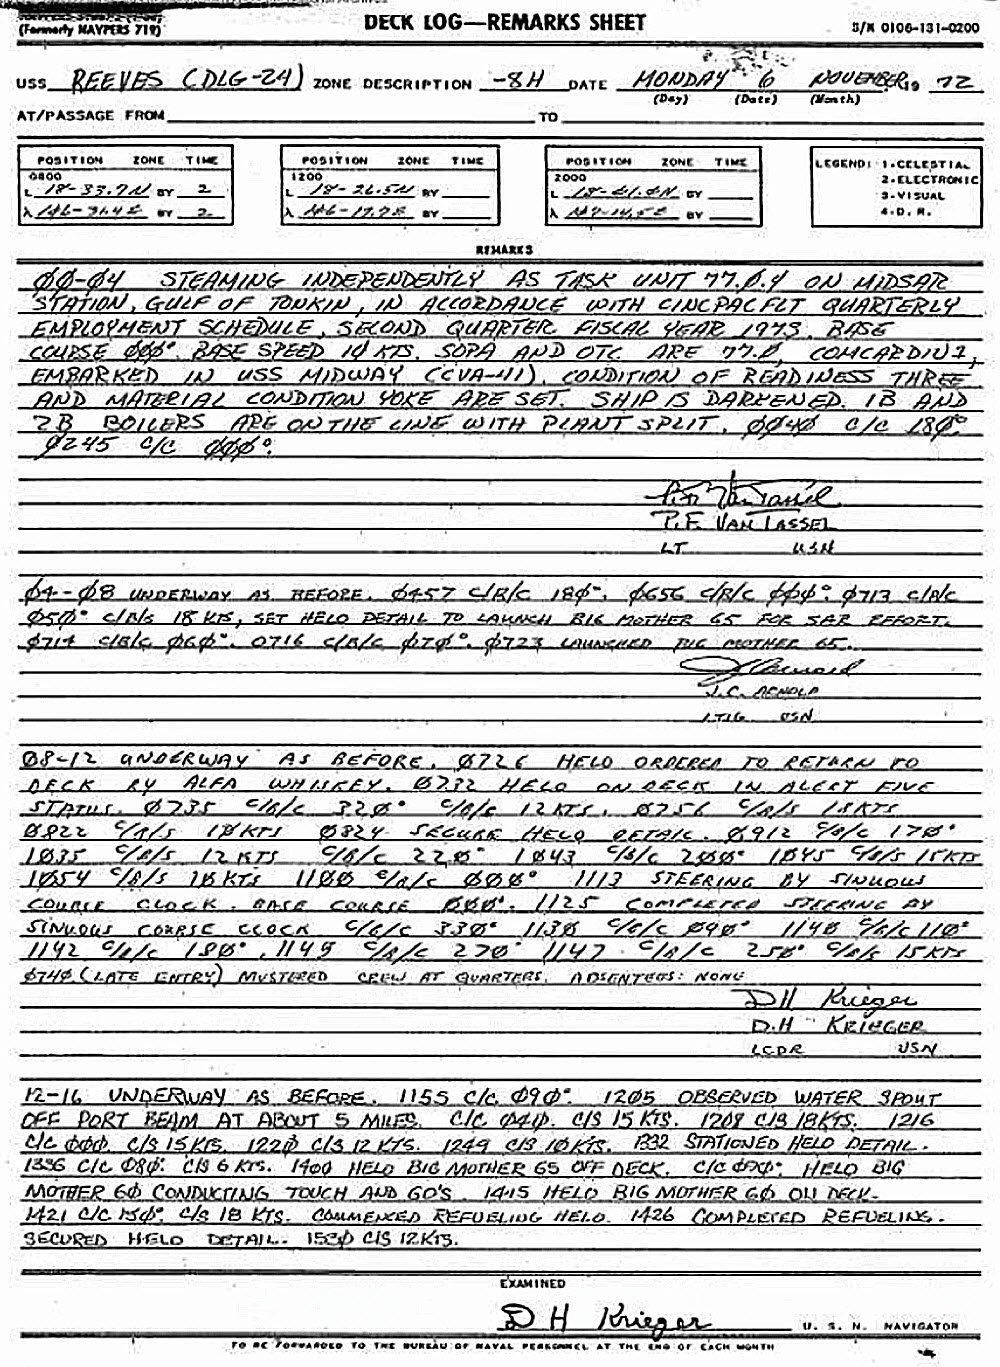 (Formerly NAVPERS 719)
DECK LOG—REMARKS SHEET
S/N 0106-131-0200
USS REEVES (DLG-24) ZONE DESCRIPTION -8H DATE MONDAY 6 NOVEMBER, 19 72
(Day) (Date) (Month)
AT/PASSAGE FROM TO
POSITION ZONE TIME POSITION ZONE TIME POSITION ZONE TIME LEGEND: 1-CELESTIAL
0800 1200 2000 2-ELECTRONIC
L 18-33.7N BY 2 L 18-26.5N BY L BY 3-VISUAL
λ BY 2 λ BY λ BY 4-D. R.
REMARKS
ØØ-Ø4 STEAMING INDEPENDENTLY AS TASK UNIT 77.Ø.4 ON MIDSAR
STATION, GULF OF TONKIN, IN ACCORDANCE WITH CINCPACFLT QUARTERLY
EMPLOYMENT SCHEDULE, SECOND QUARTER FISCAL YEAR 1973. BASE
COURSE ØØØ°. BASE SPEED 1Ø KTS. SOPA AND OTC ARE 77.Ø, COMCARDIV 1,
EMBARKED IN USS MIDWAY (CVA-41). CONDITION OF READINESS THREE
AND MATERIAL CONDITION YOKE ARE SET. SHIP IS DARKENED. 1B AND
2B BOILERS ARE ON THE LINE WITH PLANT SPLIT. ØØ4Ø C/C 18Ø°
Ø245 C/C ØØØ°.
P.F. VAN TASSEL
LT USN
Ø4-Ø8 UNDERWAY AS BEFORE. Ø457 C/B/C 18Ø°. Ø656 C/B/C ØØØ°. Ø713 C/B/C
Ø5Ø° C/B/S 18 KTS, SET HELO DETAIL TO LAUNCH BIG MOTHER 65 FOR SAR EFFORT.
Ø714 C/B/C Ø6Ø°. 0716 C/B/C Ø7Ø°. Ø723 LAUNCHED BIG MOTHER 65.
J.C. ARNOLD
LTJG USN
Ø8-12 UNDERWAY AS BEFORE. Ø726 HELO ORDERED TO RETURN TO
DECK BY ALFA WHISKEY. Ø732 HELO ON DECK IN ALERT FIVE
STATUS. Ø735 C/B/C 32Ø° C/B/C 12 KTS. Ø756 C/B/S 18 KTS
Ø822 C/B/S 1Ø KTS Ø824 SECURE HELO DETAIL. Ø912 C/B/C 17Ø°
1Ø35 C/B/S 12 KTS C/B/C 22Ø° 1Ø43 C/B/C 2ØØ° 1Ø45 C/B/S 15 KTS
1Ø54 C/B/S 1Ø KTS 11ØØ C/B/C ØØØ° 1113 STEERING BY SINUOUS
COURSE CLOCK. BASE COURSE ØØØ°. 1125 COMPLETED STEERING BY
SINUOUS COURSE CLOCK C/B/C 33Ø° 113Ø C/B/C Ø9Ø° 114Ø C/B/C 11Ø°
1142 C/B/C 18Ø°. 1145 C/B/C 27Ø° 1147 C/B/C 25Ø° C/B/S 15 KTS
Ø74Ø (LATE ENTRY) MUSTERED CREW AT QUARTERS. ABSENTEES: NONE
D H Krieger
D.H KRIEGER
LCDR USN
12-16 UNDERWAY AS BEFORE. 1155 C/C Ø9Ø°. 12Ø5 OBSERVED WATER SPOUT
OFF PORT BEAM AT ABOUT 5 MILES. C/C Ø4Ø. C/S 15 KTS. 12Ø8 C/S 18 KTS. 1216
C/C ØØØ. C/S 15 KTS. 122Ø C/S 12 KTS. 1249 C/S 1Ø KTS. 1332 STATIONED HELO DETAIL.
1336 C/C Ø8Ø°. C/S 6 KTS. 14ØØ HELO BIG MOTHER 65 OFF DECK. C/C HELO BIG
MOTHER 6Ø CONDUCTING TOUCH AND GO'S. 1415 HELO BIG MOTHER 6Ø ON DECK.
1421 C/C 15Ø°. C/S 18 KTS. COMMENCED REFUELING HELO. 1426 COMPLETED REFUELING.
SECURED HELO DETAIL. 153Ø C/S 12 KTS.
EXAMINED
D H Krieger U. S. N. NAVIGATOR
TO BE FORWARDED TO THE BUREAU OF NAVAL PERSONNEL AT THE END OF EACH MONTH